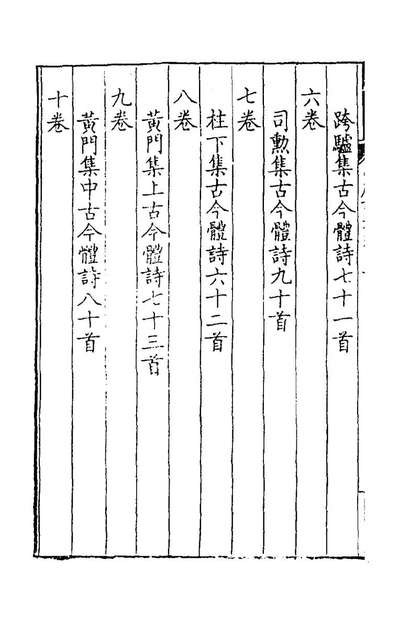 跨驢集古今體詩七十一首
六卷
司勳集古今體詩九十首
七卷
柱下集古今體詩六十二首
八卷
黃門集上古今體詩七十三首
九卷
黃門集中古今體詩八十首
十卷